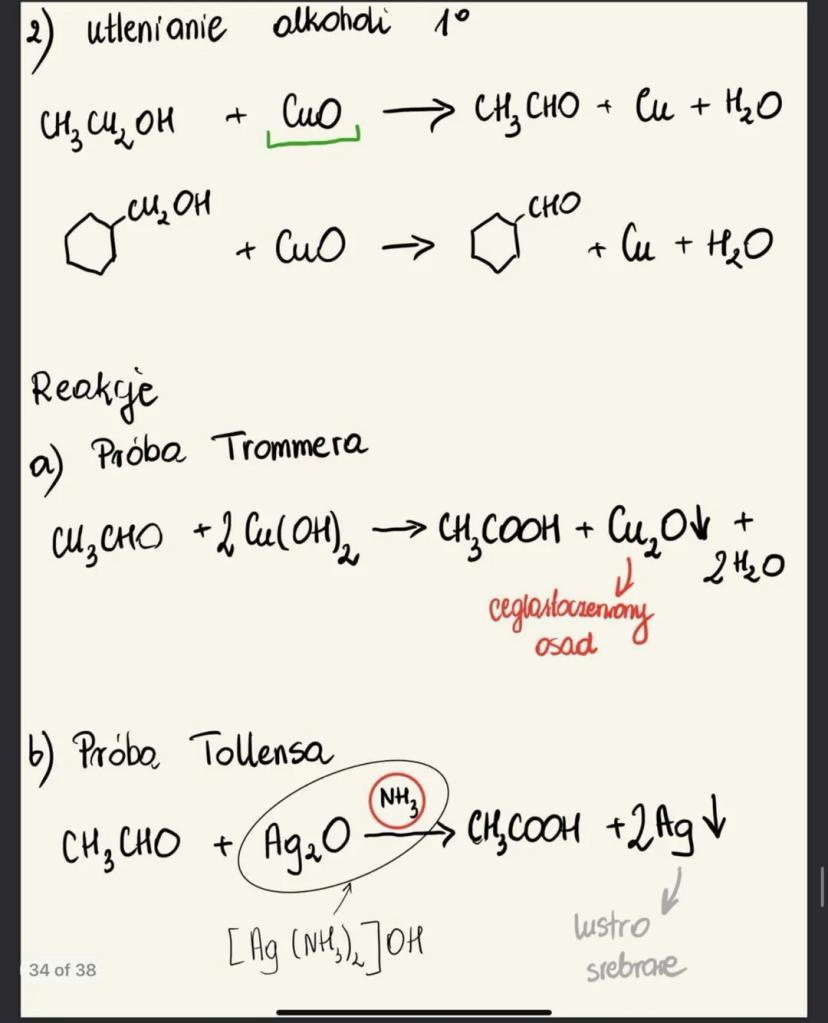 2) utlenianie alkoholi 1°
CH₃CH₂OH + CuO → CH₃CHO + Cu + H₂O
CH₂OH + CuO → CHO + Cu + H₂O
Reakcje
a) Próba Trommera
CH₃CHO + 2 Cu(OH)₂ → CH₃COOH + Cu₂O↓ +
2H₂O
ceglastoczerwony
osad
b) Próba Tollensa
NH₃
CH₃CHO + Ag₂O → CH₃COOH + 2Ag↓
[Ag(NH₃)₂]OH
lustro
srebrne
34 of 38